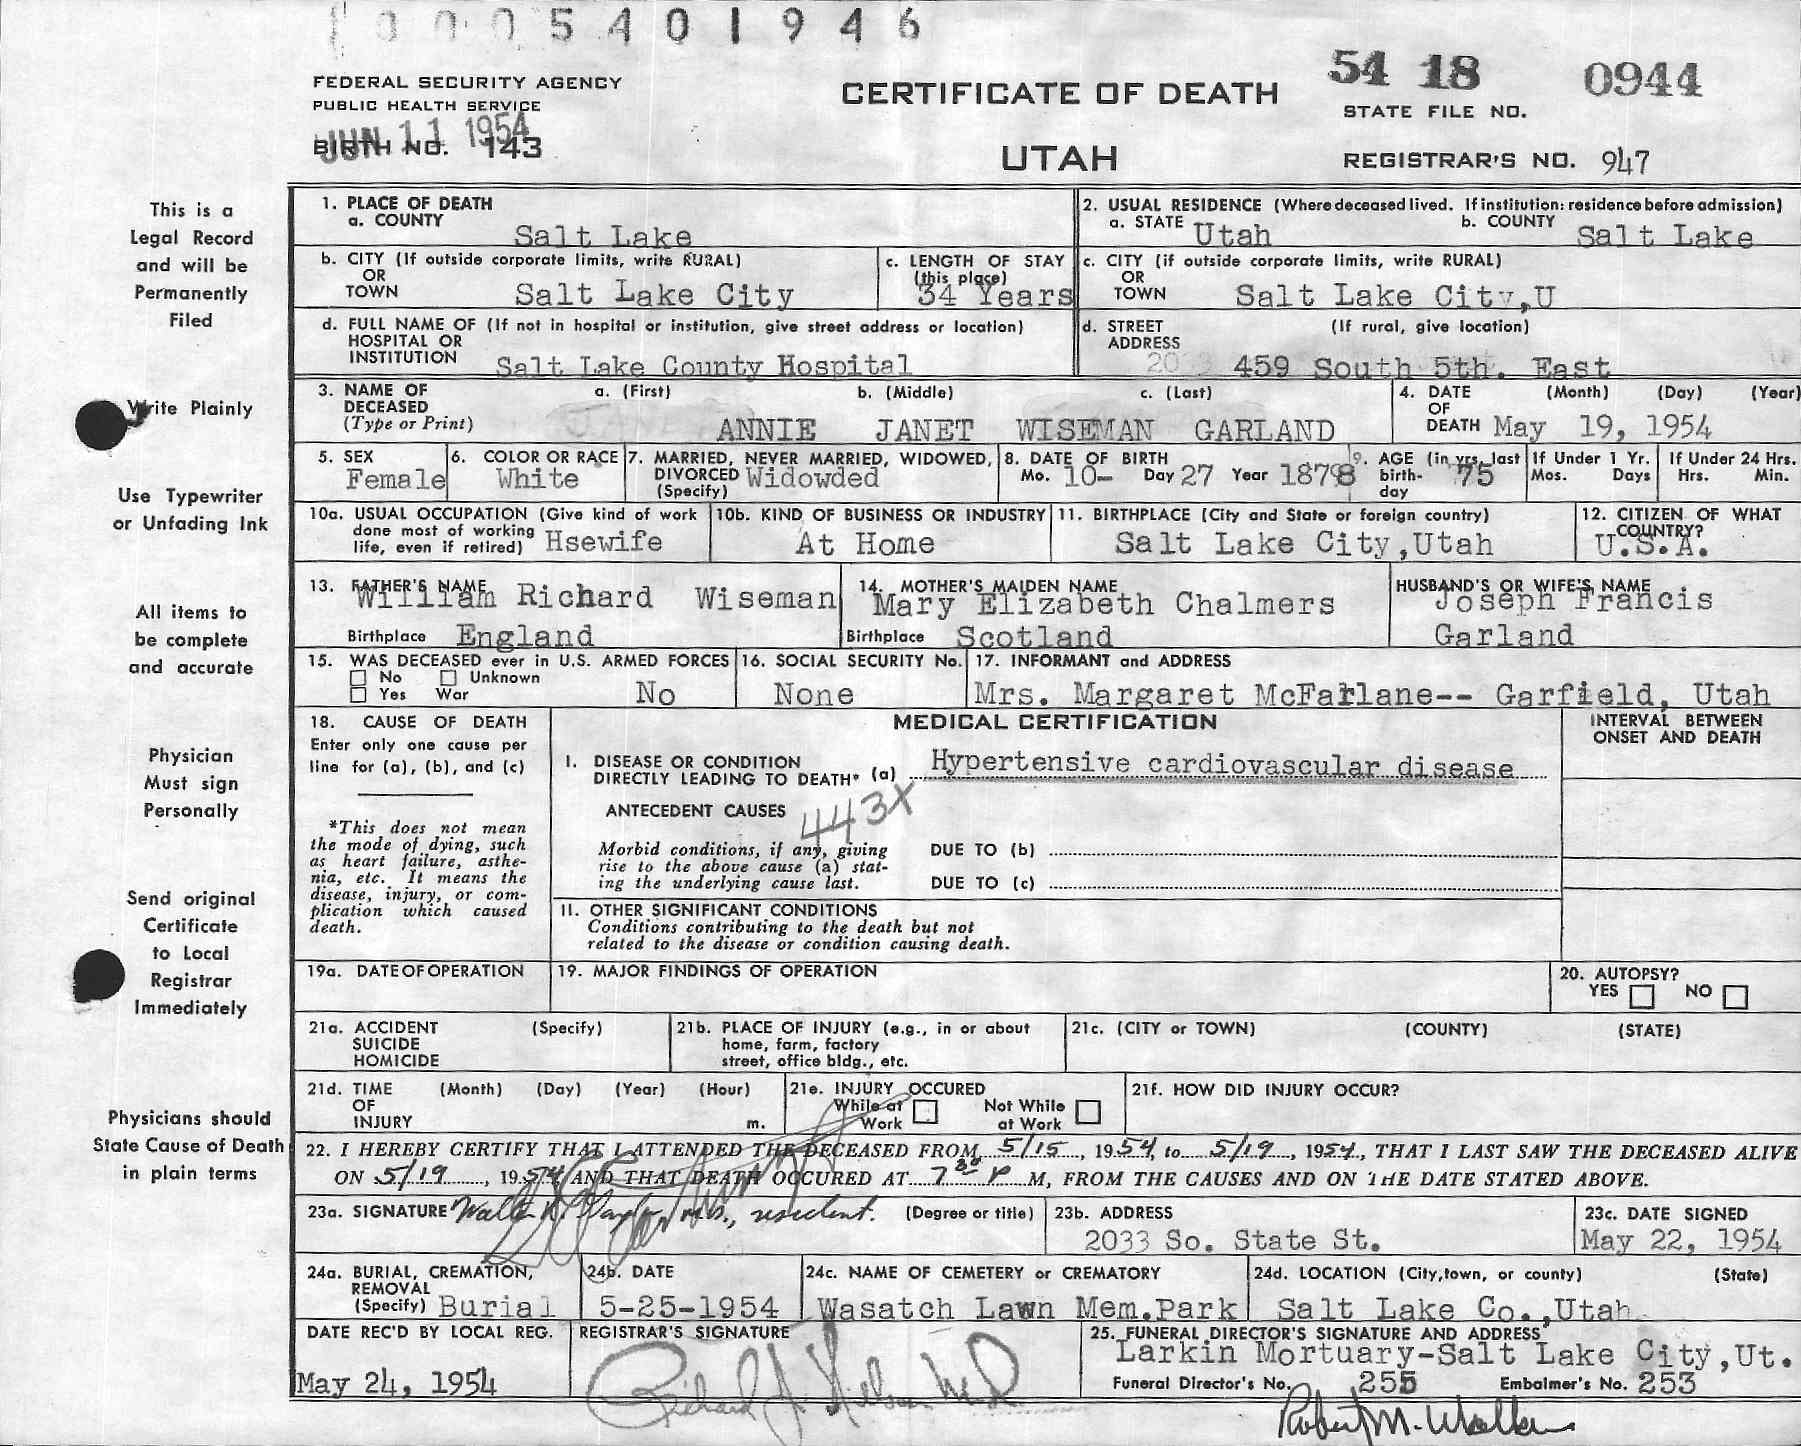 10005401946
FEDERAL SECURITY AGENCY
PUBLIC HEALTH SERVICE
JUN 11 1954
BIRTH NO. 143
CERTIFICATE OF DEATH
UTAH
54 18 0944
STATE FILE NO.
REGISTRAR'S NO. 947
This is a
Legal Record
and will be
Permanently
Filed
Write Plainly
Use Typewriter
or Unfading Ink
All items to
be complete
and accurate
Physician
Must sign
Personally
Send original
Certificate
to Local
Registrar
Immediately
Physicians should
State Cause of Death
in plain terms
1. PLACE OF DEATH
a. COUNTY
Salt Lake
2. USUAL RESIDENCE (Where deceased lived. If institution: residence before admission)
a. STATE Utah b. COUNTY Salt Lake
b. CITY (If outside corporate limits, write RURAL)
OR
TOWN Salt Lake City
c. LENGTH OF STAY
(this place)
34 Years
c. CITY (if outside corporate limits, write RURAL)
OR
TOWN Salt Lake City,U
d. FULL NAME OF (If not in hospital or institution, give street address or location)
HOSPITAL OR
INSTITUTION Salt Lake County Hospital
d. STREET (If rural, give location)
ADDRESS
459 South 5th. East
3. NAME OF a. (First) b. (Middle) c. (Last)
DECEASED
(Type or Print) ANNIE JANET WISEMAN GARLAND
4. DATE (Month) (Day) (Year)
OF
DEATH May 19, 1954
5. SEX
Female
6. COLOR OR RACE
White
7. MARRIED, NEVER MARRIED, WIDOWED,
DIVORCED Widowded
(Specify)
8. DATE OF BIRTH
Mo. 10- Day 27 Year 1878
9. AGE (in yrs. last
birth- 75
day
If Under 1 Yr.
Mos. Days
If Under 24 Hrs.
Hrs. Min.
10a. USUAL OCCUPATION (Give kind of work
done most of working
life, even if retired) Hsewife
10b. KIND OF BUSINESS OR INDUSTRY
At Home
11. BIRTHPLACE (City and State or foreign country)
Salt Lake City,Utah
12. CITIZEN OF WHAT
COUNTRY?
U.S.A.
13. FATHER'S NAME
William Richard Wiseman
Birthplace England
14. MOTHER'S MAIDEN NAME
Mary Elizabeth Chalmers
Birthplace Scotland
HUSBAND'S OR WIFE'S NAME
Joseph Francis
Garland
15. WAS DECEASED ever in U.S. ARMED FORCES
No Unknown
Yes War No
16. SOCIAL SECURITY No.
None
17. INFORMANT and ADDRESS
Mrs. Margaret McFarlane-- Garfield, Utah
18. CAUSE OF DEATH
Enter only one cause per
line for (a), (b), and (c)
*This does not mean
the mode of dying, such
as heart failure, asthe-
nia, etc. It means the
disease, injury, or com-
plication which caused
death.
MEDICAL CERTIFICATION
INTERVAL BETWEEN
ONSET AND DEATH
I. DISEASE OR CONDITION
DIRECTLY LEADING TO DEATH* (a) Hypertensive cardiovascular disease
ANTECEDENT CAUSES
443X
Morbid conditions, if any, giving
rise to the above cause (a) stat-
ing the underlying cause last.
DUE TO (b)
DUE TO (c)
II. OTHER SIGNIFICANT CONDITIONS
Conditions contributing to the death but not
related to the disease or condition causing death.
19a. DATE OF OPERATION
19. MAJOR FINDINGS OF OPERATION
20. AUTOPSY?
YES NO
21a. ACCIDENT (Specify)
SUICIDE
HOMICIDE
21b. PLACE OF INJURY (e.g., in or about
home, farm, factory
street, office bldg., etc.
21c. (CITY or TOWN) (COUNTY) (STATE)
21d. TIME (Month) (Day) (Year) (Hour)
OF
INJURY m.
21e. INJURY OCCURED
While at Not While
Work at Work
21f. HOW DID INJURY OCCUR?
22. I HEREBY CERTIFY THAT I ATTENDED THE DECEASED FROM 5/15, 1954, to 5/19, 1954, THAT I LAST SAW THE DECEASED ALIVE
ON 5/19, 1954 AND THAT DEATH OCCURED AT 7 30 P M, FROM THE CAUSES AND ON THE DATE STATED ABOVE.
23a. SIGNATURE Walter R. Taylor M.D., resident. (Degree or title)
23b. ADDRESS
2033 So. State St.
23c. DATE SIGNED
May 22, 1954
24a. BURIAL, CREMATION,
REMOVAL
(Specify) Burial
24b. DATE
5-25-1954
24c. NAME OF CEMETERY or CREMATORY
Wasatch Lawn Mem.Park
24d. LOCATION (City,town, or county) (State)
Salt Lake Co.,Utah
DATE REC'D BY LOCAL REG.
May 24, 1954
REGISTRAR'S SIGNATURE
Richard J. Nelson M.D.
25. FUNERAL DIRECTOR'S SIGNATURE AND ADDRESS
Larkin Mortuary-Salt Lake City,Ut.
Funeral Director's No. 255 Embalmer's No. 253
Robert M. Walker